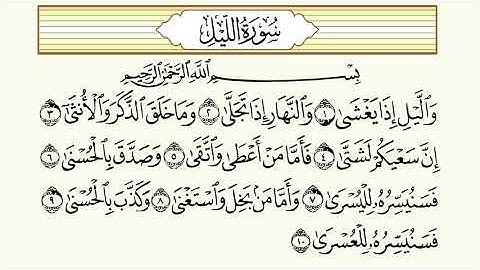 سُورَةُ اللَّيْلِ
بِسْمِ اللَّهِ الرَّحْمَٰنِ الرَّحِيمِ
وَالَّيْلِ إِذَا يَغْشَىٰ ١ وَالنَّهَارِ إِذَا تَجَلَّىٰ ٢ وَمَا خَلَقَ الذَّكَرَ وَالْأُنثَىٰٓ ٣
إِنَّ سَعْيَكُمْ لَشَتَّىٰ ٤ فَأَمَّا مَنْ أَعْطَىٰ وَاتَّقَىٰ ٥ وَصَدَّقَ بِالْحُسْنَىٰ ٦
فَسَنُيَسِّرُهُۥ لِلْيُسْرَىٰ ٧ وَأَمَّا مَنۢ بَخِلَ وَاسْتَغْنَىٰ ٨ وَكَذَّبَ بِالْحُسْنَىٰ ٩
فَسَنُيَسِّرُهُۥ لِلْعُسْرَىٰ ١٠